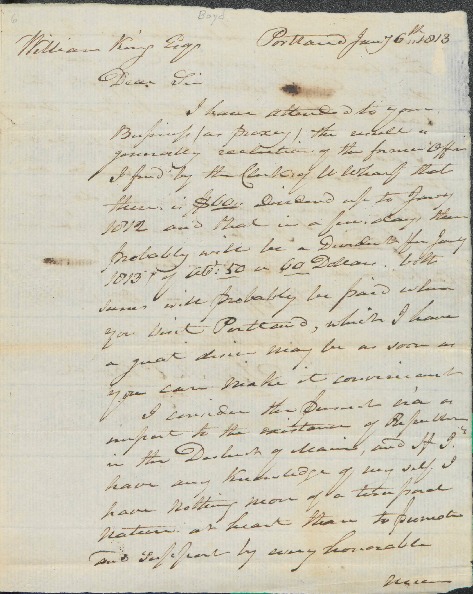 6
Boyd
William King Esqr Portland Jany 6th 1813
Dear Sir
I have attended to your
Business (as proxey) the result a
generally reelection of the former Officers
I find by the Clerk of U Wharf that
there is $60 dividend up to Jany
1812 and that in a few days there
probably will be a Dividend for Jany
1813 of 50 or 60 Dollars. both
sums will probably be paid when
you visit Portland, which I have
a great desire may be as soon as
you can make it convenient
I consider the present
respect to the existance of Republican
in the District of Maine, and If I
have any knowledge of my self I
have nothing more of a temporal
nature at heart than to promote
and support by every honorable